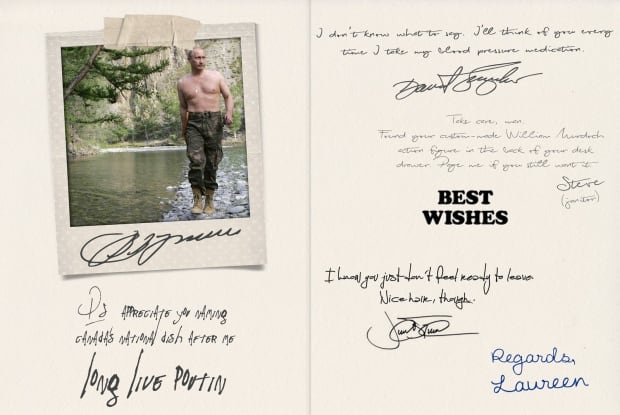 PS APPRECIATE YOU NAMING
CANADA'S NATIONAL DISH AFTER ME
LONG LIVE POUTIN
I don't know what to say. I'll think of you every
time I take my blood pressure medication.
Take care, man.
Found your custom-made William Murdoch
action figure in the back of your desk
drawer. Page me if you still want it.
Steve
(janitor)
BEST
WISHES
I know you just don't feel ready to leave.
Nice hair, though.
Regards,
Laureen